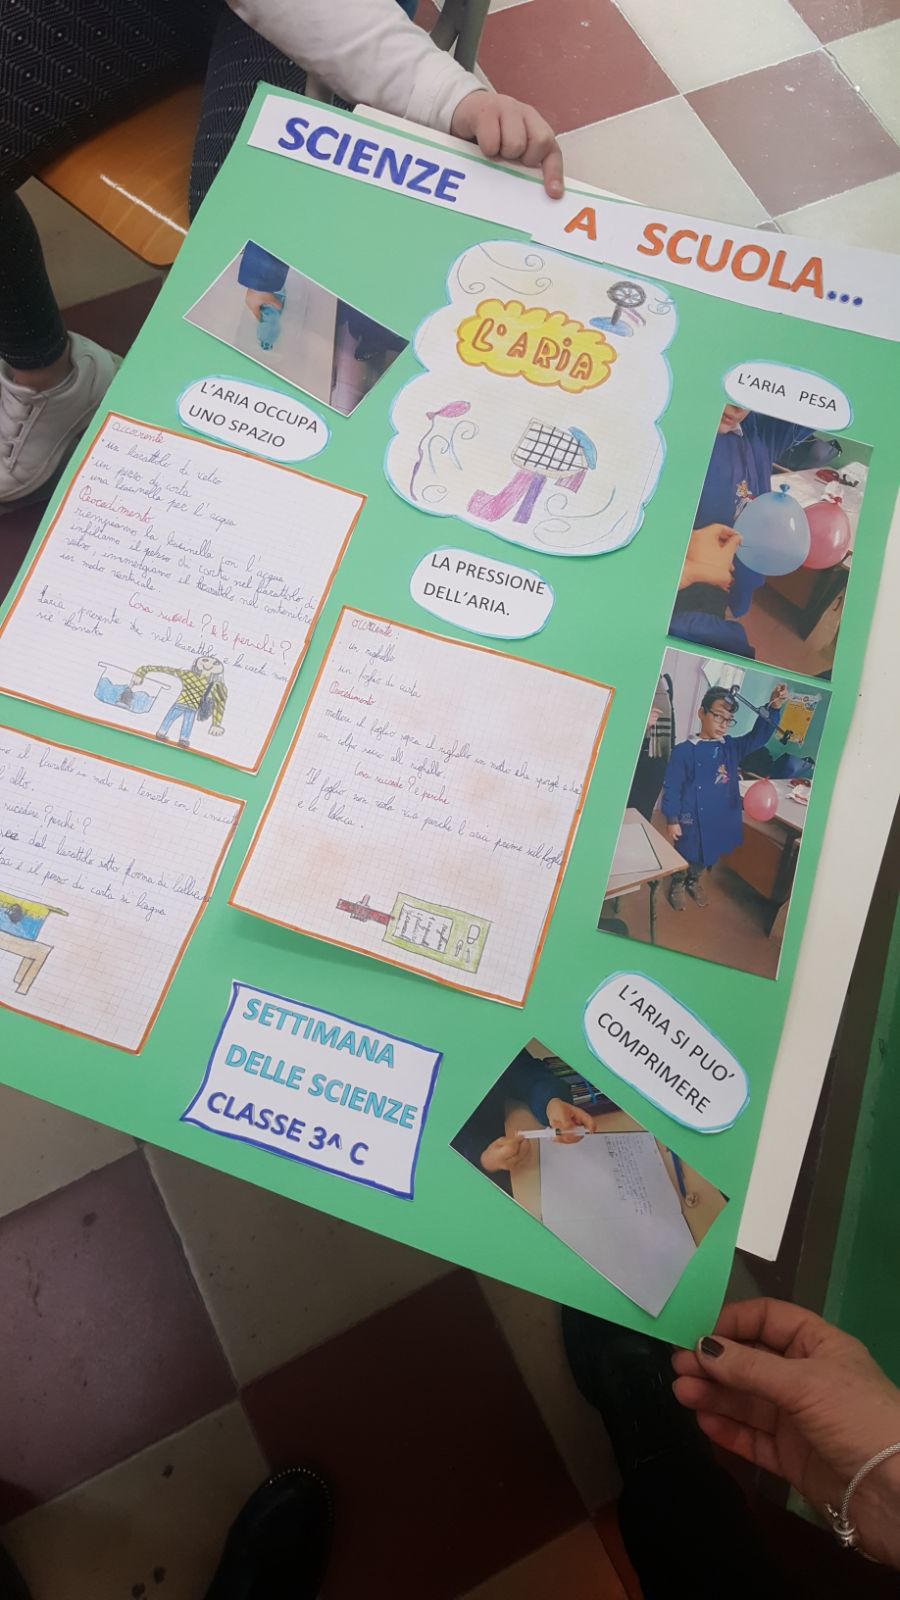 SCIENZE A SCUOLA...
L'ARIA
L'ARIA OCCUPA
UNO SPAZIO
occorrente
• un barattolo di vetro
• un pezzo di carta
• una bacinella per l'acqua
Procedimento
riempiamo la bacinella con l'acqua
infiliamo il pezzo di carta nel barattolo di
vetro, immergiamo il barattolo nel contenitore
in modo verticale.
Cosa succede? e perchè?
L'aria presente nel barattolo e la carta non
si è bagnata
il barattolo in modo da tenerlo con l'
l'alto.
succedere? perchè?
dal barattolo sotto forma di bollicine
e il pezzo di carta si bagna
LA PRESSIONE
DELL'ARIA.
occorrente:
• un righello
• un foglio di carta
Procedimento
mettere il foglio sopra il righello in modo che sporge e da
un colpo secco al righello.
Cosa succede? e perche
Il foglio non vola via perche l'aria preme sul foglio
e lo blocca.
L'ARIA PESA
L'ARIA SI PUO'
COMPRIMERE
SETTIMANA
DELLE SCIENZE
CLASSE 3^ C